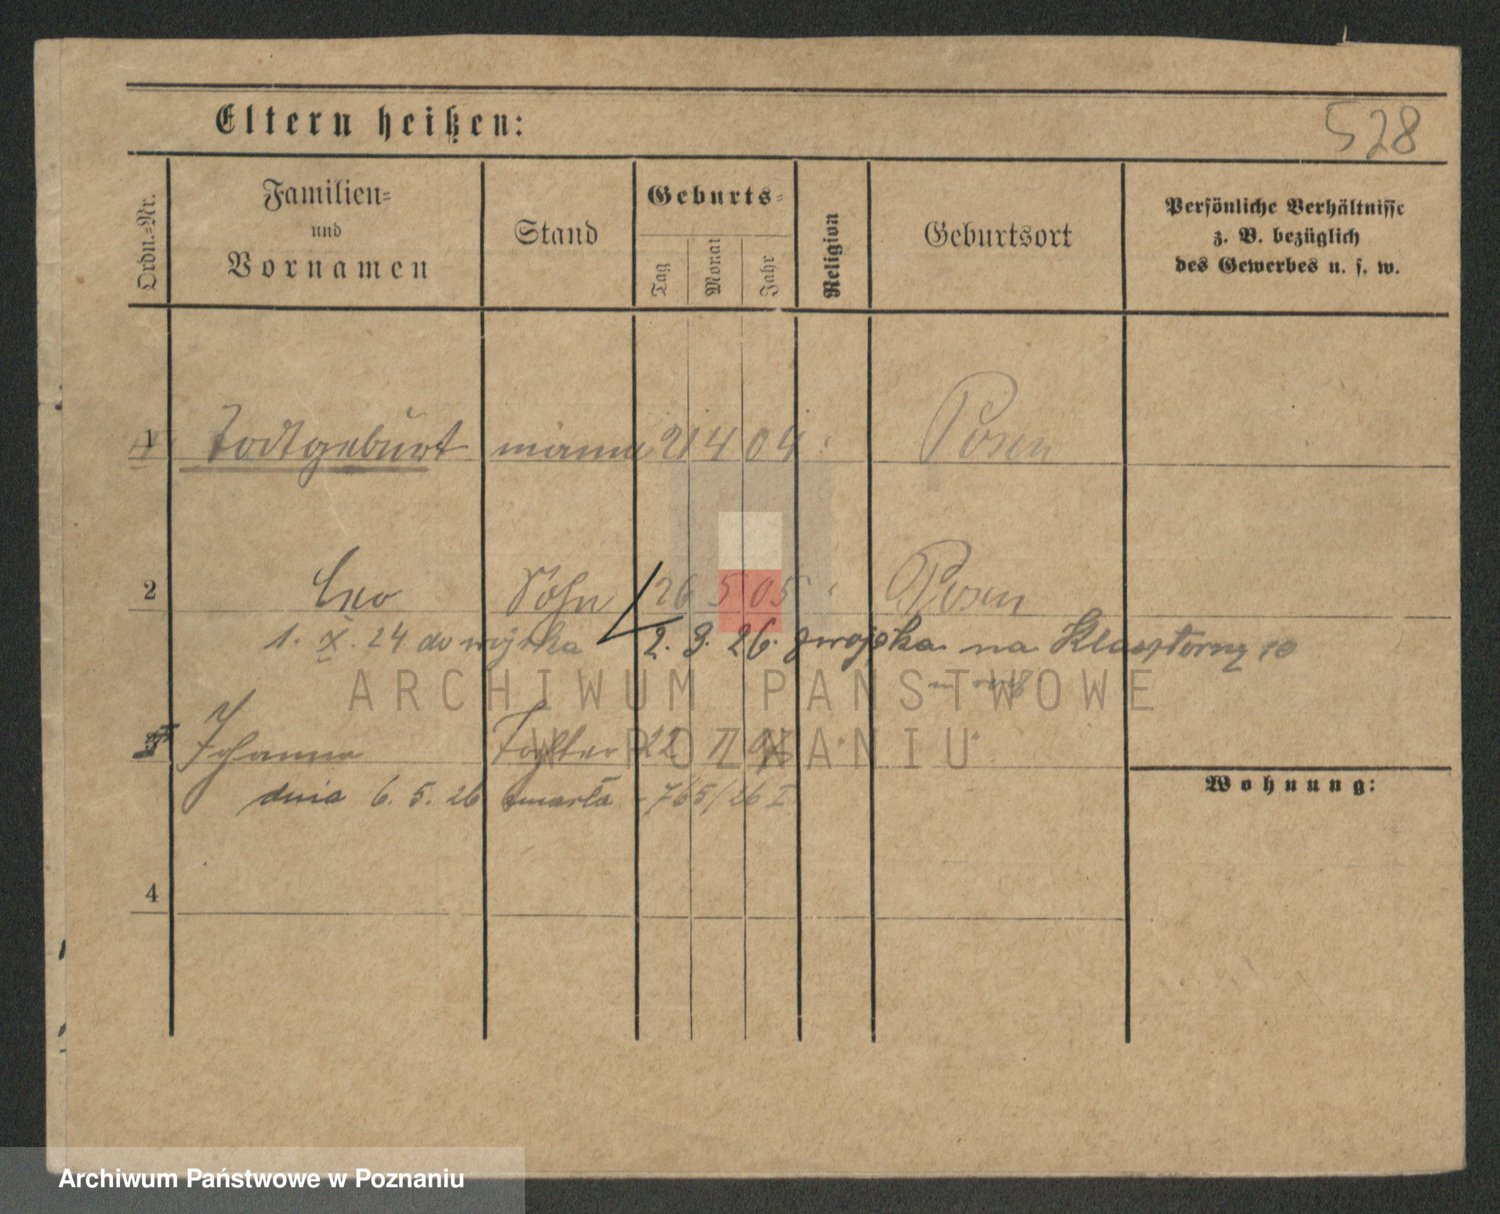 Eltern heißen:
528
Ordn.-Nr.
Familien-
und
Vornamen
Stand
Geburts-
Tag
Monat
Jahr
Religion
Geburtsort
Persönliche Verhältnisse
z. B. bezüglich
des Gewerbes u. s. w.
1 Todtgeburt 21 4 04 Posen
2 Leo Sohn 26 5 05 Posen
1. X. 24 do wojska 2. 9. 26. z wojska na Klasztorną 10
ARCHIWUM PAŃSTWOWE
3 Johanna Tochter 22
W POZNANIU
Wohnung:
dnia 6. 5. 26 zmarła - 765/26 I
4
Archiwum Państwowe w Poznaniu